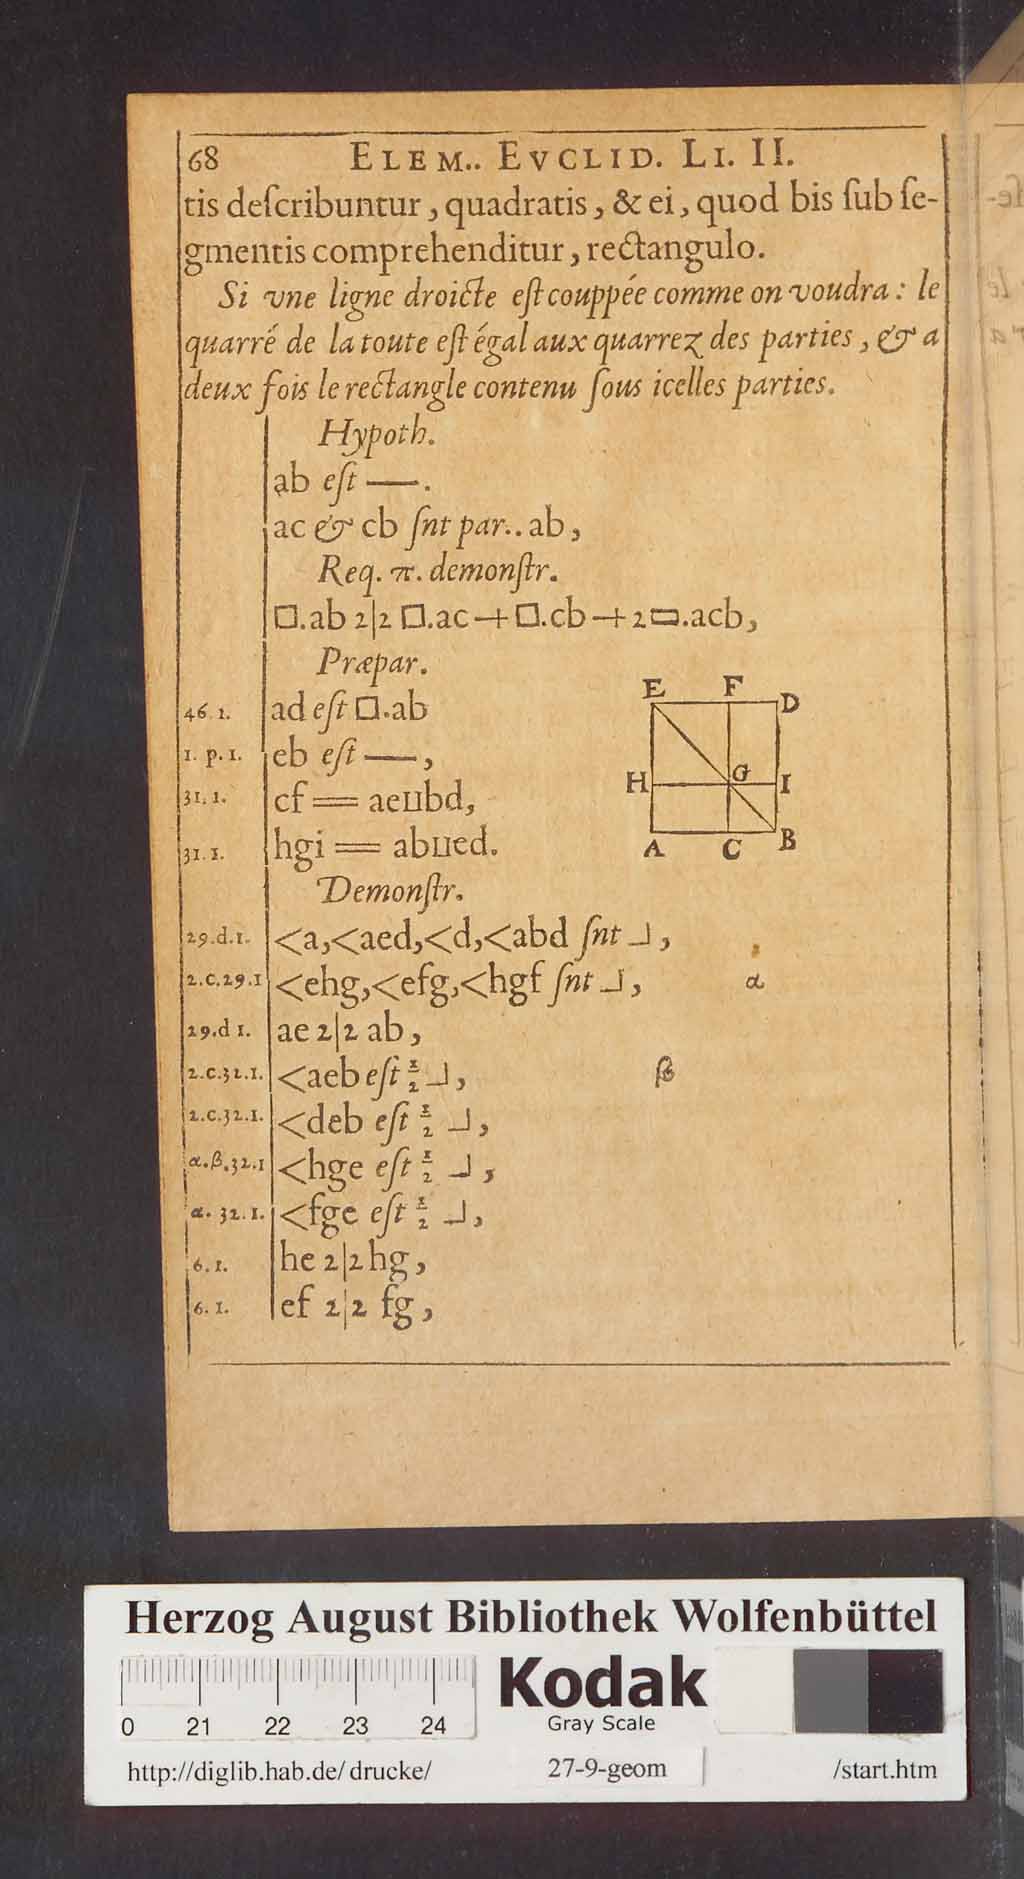 68 ELEM.. EVCLID. LI. II.
tis deſcribuntur, quadratis, & ei, quod bis ſub ſe-
gmentis comprehenditur, rectangulo.
Si vne ligne droicte eſt couppée comme on voudra: le
quarré de la toute eſt égal aux quarrez des parties, & a
deux fois le rectangle contenu ſous icelles parties.
Hypoth.
ab eſt —.
ac & cb ſnt par.. ab,
Req. π. demonſtr.
□.ab 2|2 □.ac + □.cb + 2 ▭.acb,
Præpar.
46. 1. ad eſt □.ab
1. p. 1. eb eſt —,
31. 1. cf == aeııbd,
31. 1. hgi == abııed.
E F D
H G I
A C B
Demonſtr.
29.d.1. <a,<aed,<d,<abd ſnt ⅃,
2.c.29.1 <ehg,<efg,<hgf ſnt ⅃, α
29.d 1. ae 2|2 ab,
2.c.32.1. <aeb eſt ½ ⅃, β
2.c.32.1. <deb eſt ½ ⅃,
α.β.32.1 <hge eſt ½ ⅃,
α. 32. 1. <fge eſt ½ ⅃,
6. 1. he 2|2 hg,
6. 1. ef 2|2 fg,
Herzog August Bibliothek Wolfenbüttel
0 21 22 23 24
Kodak
Gray Scale
http://diglib.hab.de/drucke/ 27-9-geom /start.htm